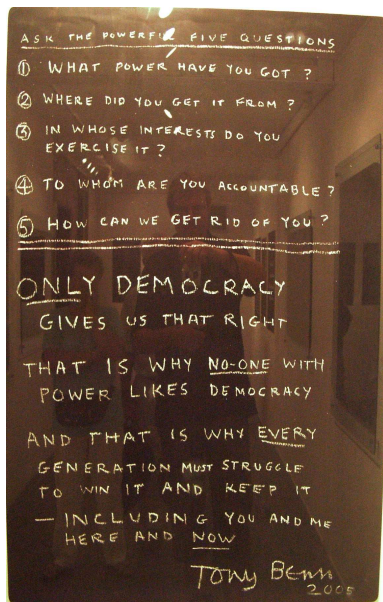 ASK THE POWERFUL FIVE QUESTIONS
① WHAT POWER HAVE YOU GOT ?
② WHERE DID YOU GET IT FROM ?
③ IN WHOSE INTERESTS DO YOU
EXERCISE IT ?
④ TO WHOM ARE YOU ACCOUNTABLE ?
⑤ HOW CAN WE GET RID OF YOU ?
ONLY DEMOCRACY
GIVES US THAT RIGHT
THAT IS WHY NO-ONE WITH
POWER LIKES DEMOCRACY
AND THAT IS WHY EVERY
GENERATION MUST STRUGGLE
TO WIN IT AND KEEP IT
— INCLUDING YOU AND ME
HERE AND NOW
TONY BENN
2005